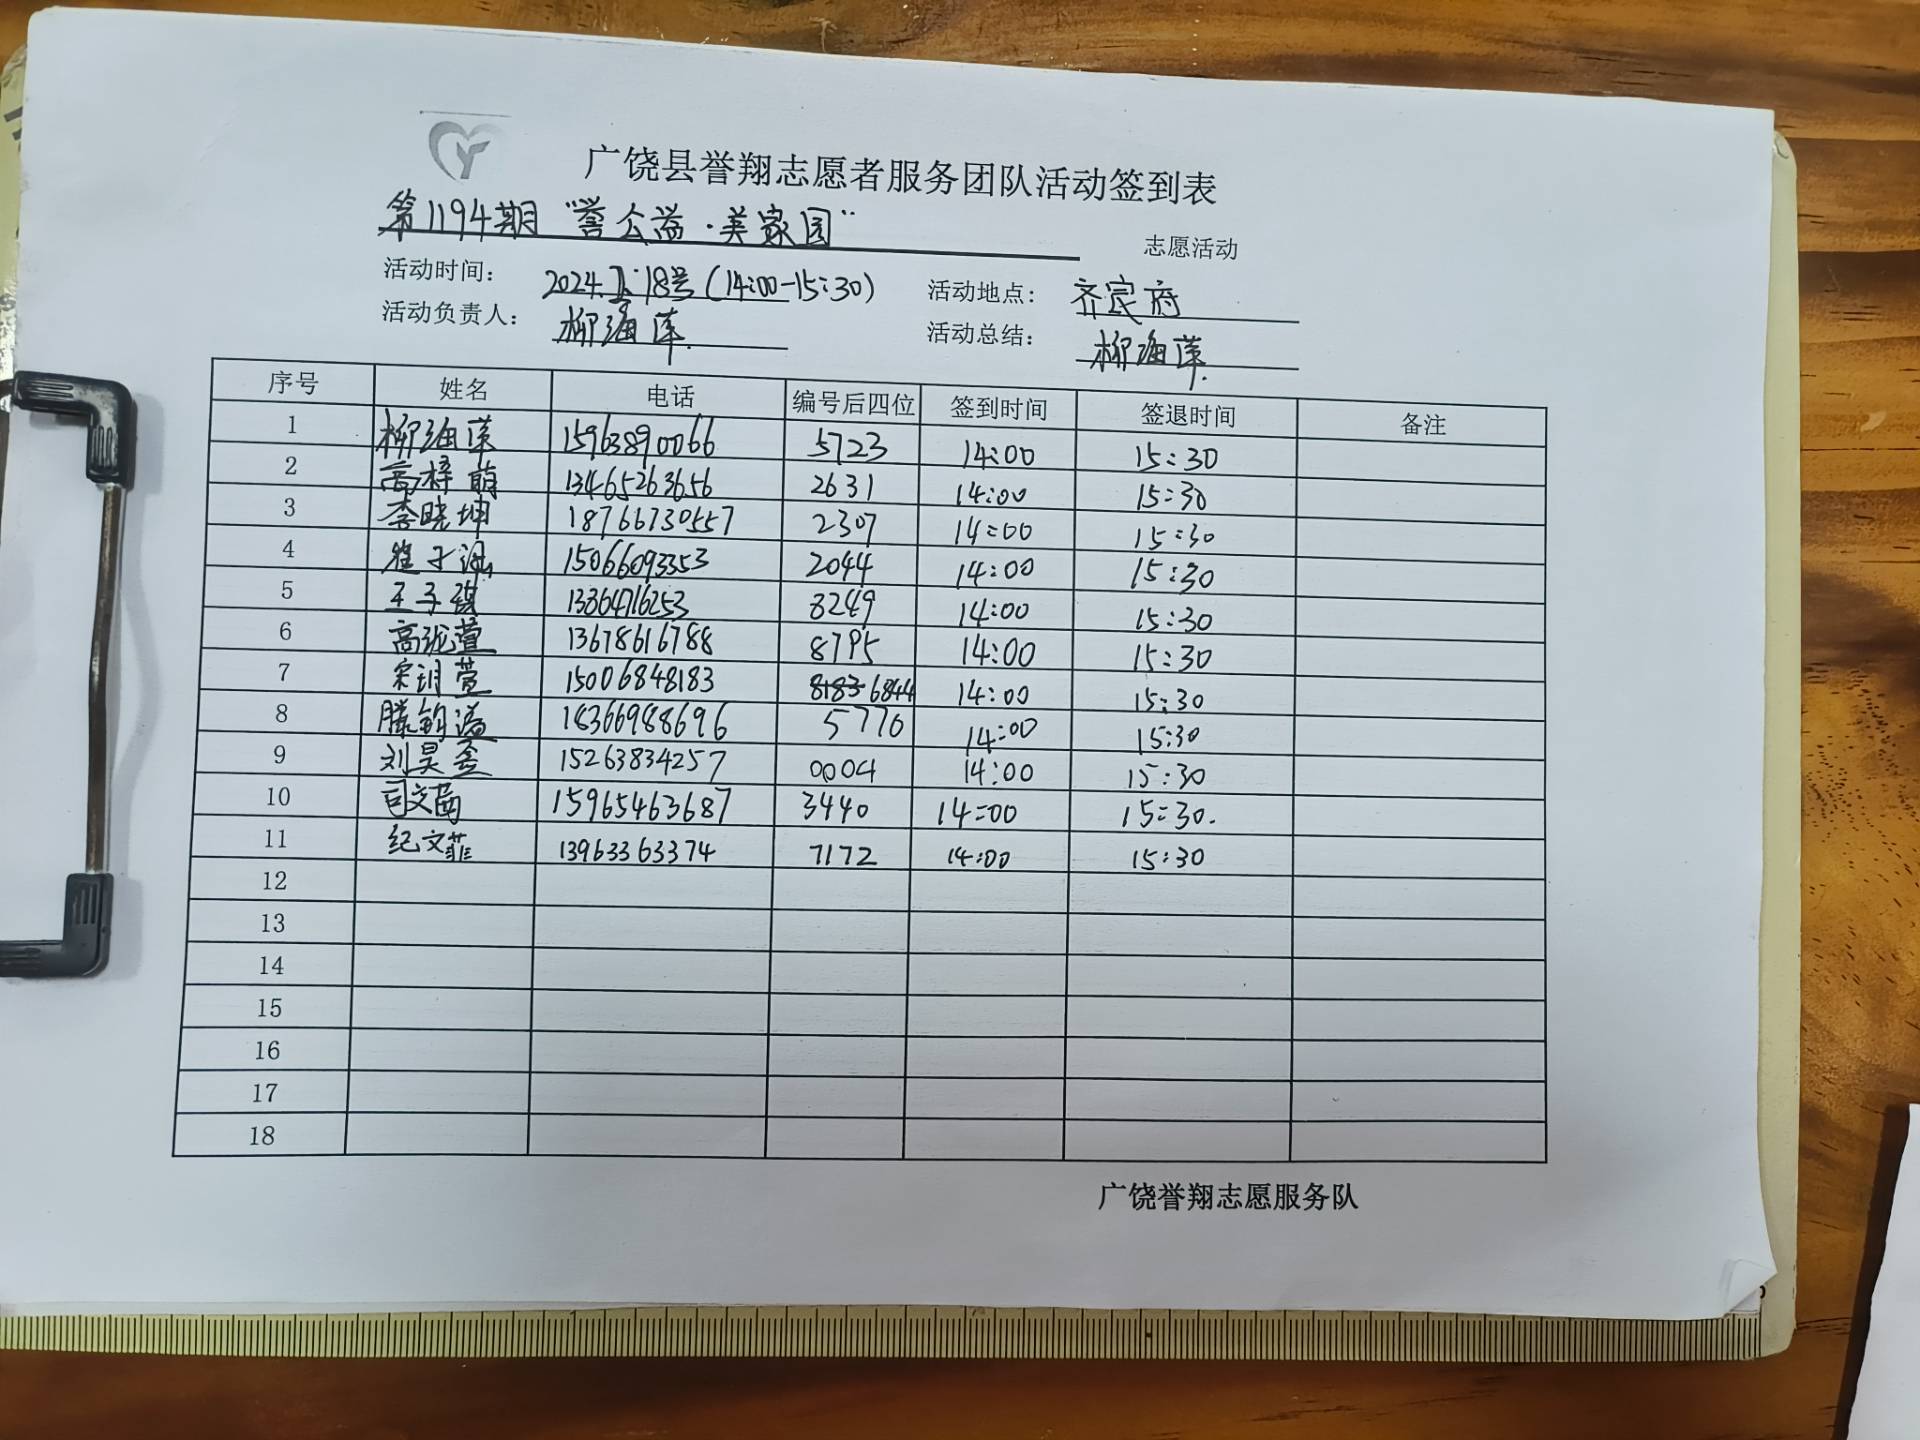 广饶县誉翔志愿者服务团队活动签到表
第1194期"誉公益·美家园" 志愿活动
活动时间: 2024.7.18号(14:00-15:30) 活动地点: 齐宸府
活动负责人: 柳海萍 活动总结: 柳海萍
序号 姓名 电话 编号后四位 签到时间 签退时间 备注
1 柳海萍 15963890066 5723 14:00 15:30
2 高梓萌 13465263656 2631 14:00 15:30
3 李晓坤 18766730557 2307 14:00 15:30
4 崔子涵 15066093353 2044 14:00 15:30
5 王子琪 13864716253 8249 14:00 15:30
6 高珑萱 13678616788 8795 14:00 15:30
7 宋玥萱 15006848183 6844 14:00 15:30
8 滕钧溢 18366988696 5770 14:00 15:30
9 刘昊 15263834257 0004 14:00 15:30
10 司文 15965463687 3440 14:00 15:30.
11 纪文菲 13963363374 7172 14:00 15:30
12
13
14
15
16
17
18
广饶誉翔志愿服务队